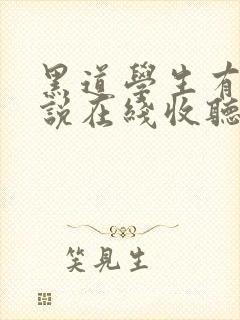 黑道學生有
說在綫收聽
笑見生